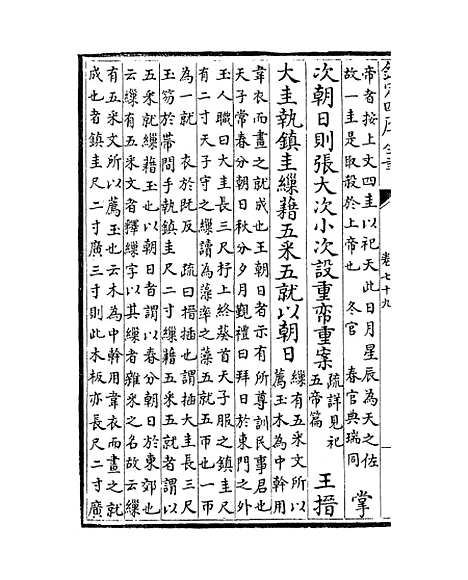 欽定四庫全書
卷七十九
帝者按上文四圭以祀天此日月星辰為天之佐
故一圭是取殺於上帝也　冬官　春官典瑞同　掌
次朝日則張大次小次設重帟重案疏詳見祀五帝篇　王搢
大圭執鎮圭繅藉五采五就以朝日繅有五采文所以薦玉木為中榦用
韋衣而畫之就成也王朝日者示有所尊訓民事君也
天子常春分朝日秋分夕月觀禮曰拜日於東門之外
玉人職曰大圭長三尺杼上終葵首天子服之鎮圭尺
有二寸天子守之繅讀為藻率之藻五就五帀也一帀
為一就　衣於旣反　疏曰搢插也謂插大圭長三尺
玉笏於帶間手執鎮圭尺二寸繅藉五采五就者謂以
五采就繅藉玉也以朝日者謂以春分朝日於東郊也
云繅有五采文者釋繅字以其繅者雜采之名故云繅
有五采文所以薦玉也云木為中榦用韋衣而畫之就
成也者鎮圭尺二寸廣三寸則此木板亦長尺二寸廣